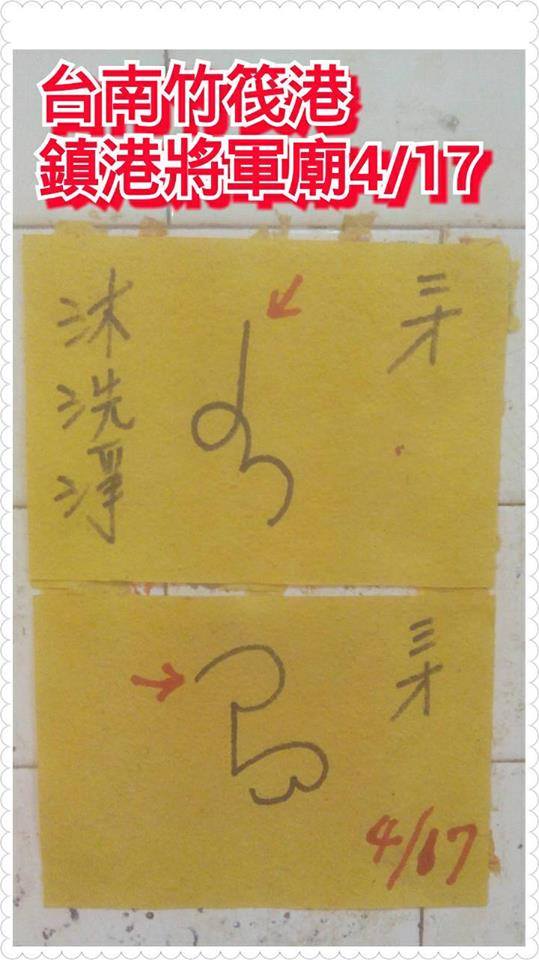 台南竹筏港
鎮港將軍廟4/17
三才
沐洗淨
三才
4/17